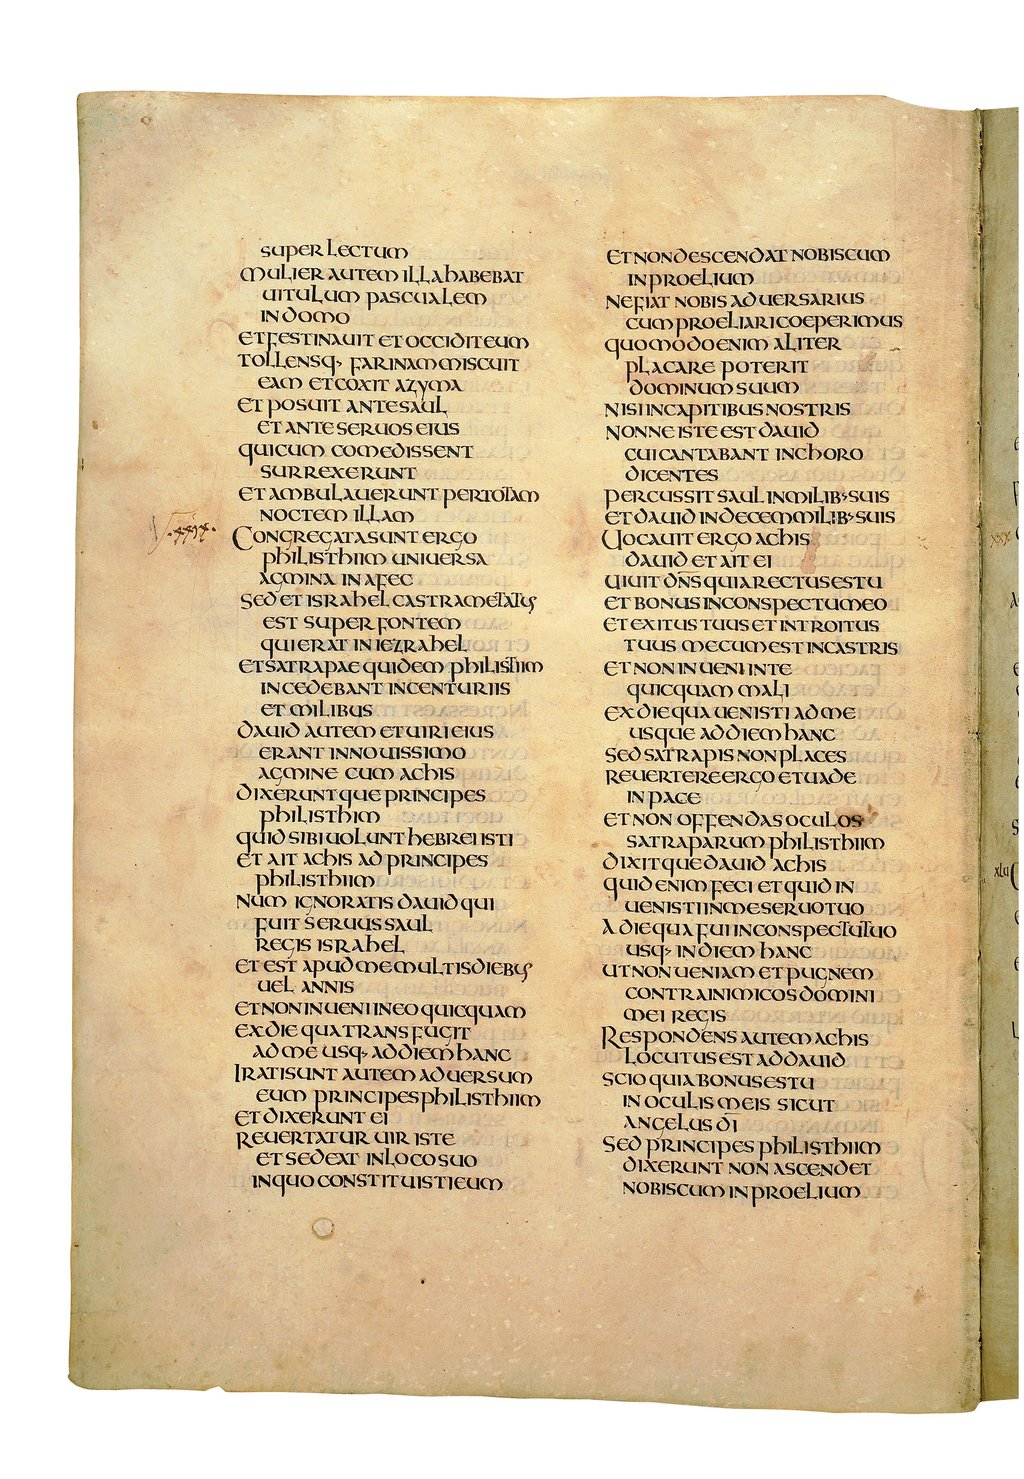 super lectum
mulier autem illa habebat
uitulum pascualem
in domo
et festinauit et occidit eum
tollensq· farinam miscuit
eam et coxit azyma
et posuit ante saul
et ante seruos eius
quicum comedissent
surrexerunt
et ambulauerunt per totam
noctem illam
Congregata sunt ergo
philisthiim uniuersa
agmina in afec
sed et israhel castrametatus
est super fontem
qui erat in iezrahel
et satrapae quidem philistiim
incedebant in centuriis
et milibus
dauid autem et uiri eius
erant in nouissimo
agmine cum achis
dixeruntque principes
philisthim
quid sibi uolunt hebrei isti
et ait achis ad principes
philisthiim
num ignoratis dauid qui
fuit seruus saul
regis israhel
et est apud me multis diebus
uel annis
et non inueni in eo quicquam
ex die qua transfugit
ad me usq· ad diem hanc
Irati sunt autem aduersum
eum principes philisthiim
et dixerunt ei
reuertatur uir iste
et sedeat in loco suo
in quo constituisti eum
et non descendat nobiscum
in proelium
ne fiat nobis aduersarius
cum proeliari coeperimus
quomodo enim aliter
placare poterit
dominum suum
nisi in capitibus nostris
nonne iste est dauid
cui cantabant in choro
dicentes
percussit saul in milib· suis
et dauid in decem milib· suis
Uocauit ergo achis
dauid et ait ei
uiuit dn̄s quia rectus es tu
et bonus in conspectu meo
et exitus tuus et introitus
tuus mecum est in castris
et non inueni in te
quicquam mali
ex die qua uenisti ad me
usque ad diem hanc
sed satrapis non places
reuertere ergo et uade
in pace
et non offendas oculos
satraparum philisthiim
dixitque dauid achis
quid enim feci et quid in
uenisti in me seruo tuo
a die qua fui in conspectu tuo
usq· in diem hanc
ut non ueniam et pugnem
contra inimicos domini
mei regis
Respondens autem achis
locutus est ad dauid
scio quia bonus es tu
in oculis meis sicut
angelus dī
sed principes philisthiim
dixerunt non ascendet
nobiscum in proelium